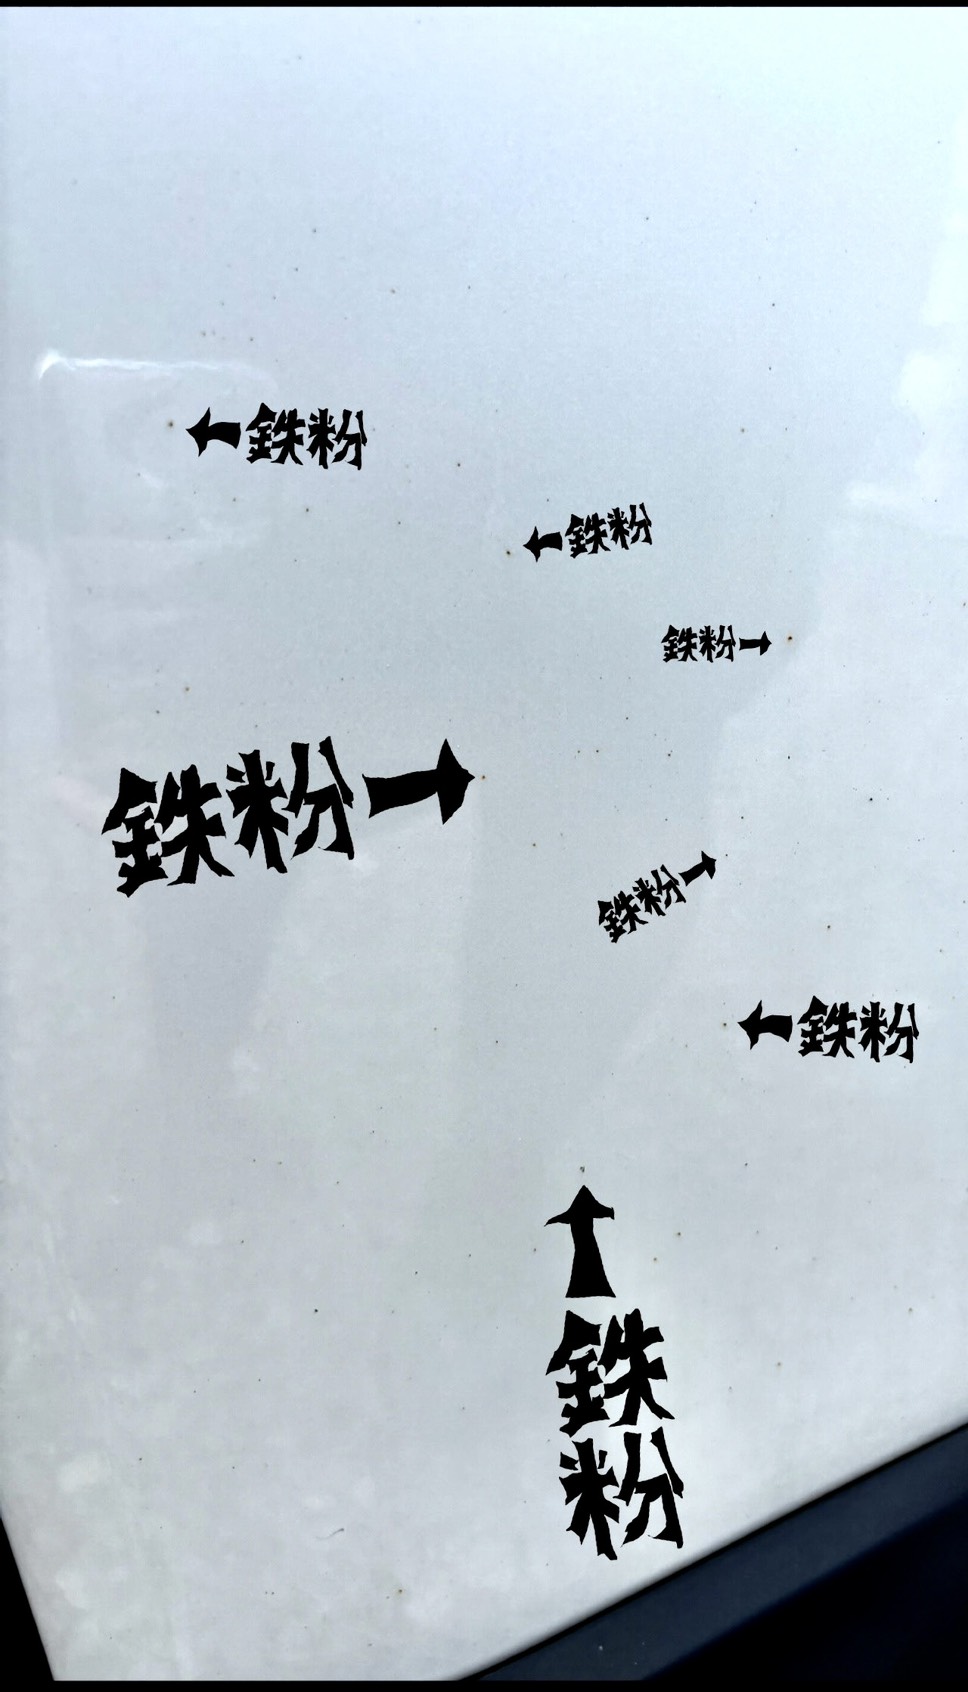 ←鉄粉
←鉄粉
鉄粉→
鉄粉→
鉄粉→
←鉄粉
↑
鉄
粉